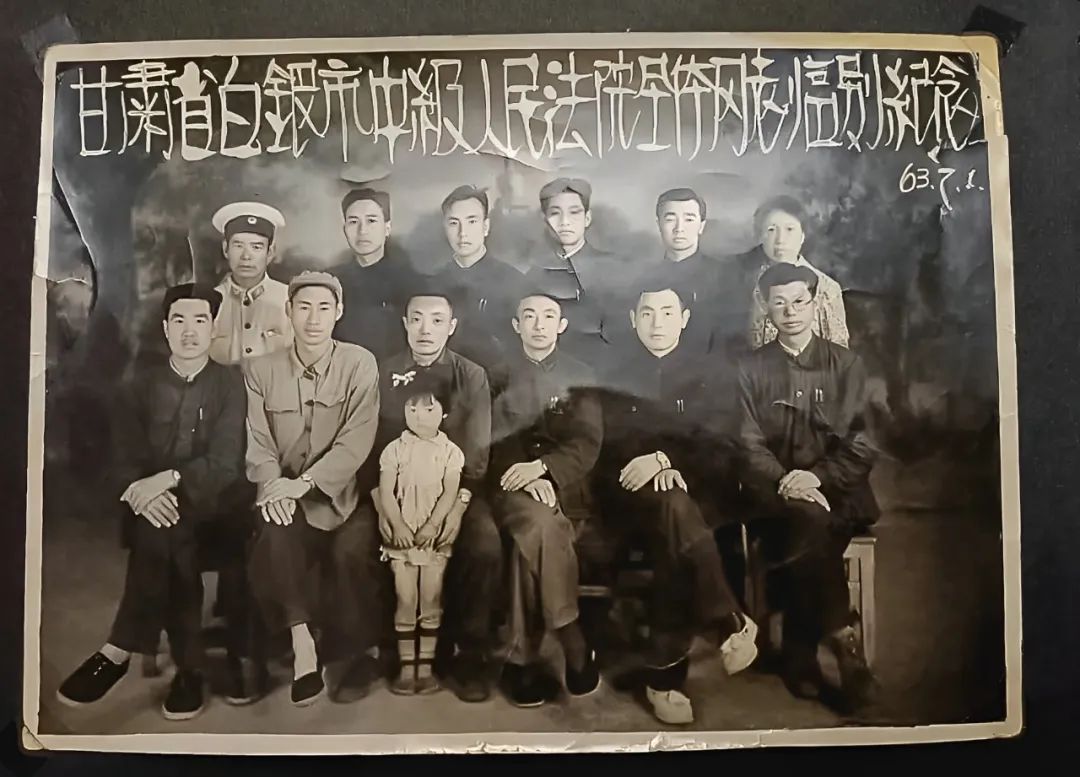 甘肅省白銀市中級人民法院全体同志别紀念
63.7.1.